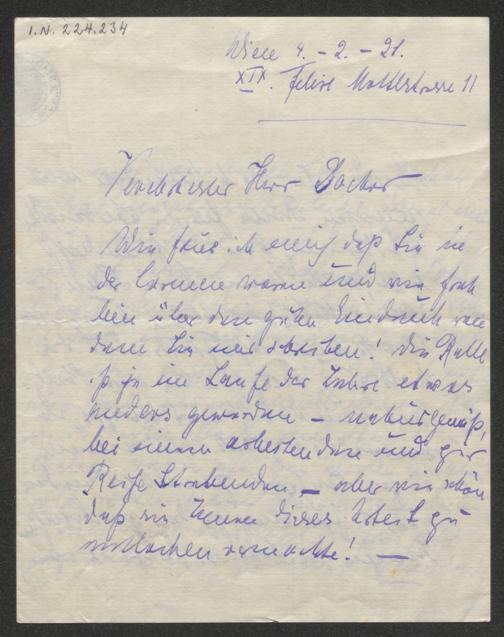 I.N. 224.234
Wien 4. - 2. - 21.
XIX. Felix Mottlstrasse 11
Verehrtester Herr Doctor
Wie freue ich mich daß Sie in
der Carmen waren und wie froh
bin über den guten Eindruck von
dem Sie mir schreiben! Die Rolle
ist ja im Laufe der Jahre etwas
anders geworden – naturgemäß,
bei einem arbeitenden und zur
Reife Strebenden – aber wie schön
daß sie Ihnen dieses Urteil zu
entlocken vermochte! —